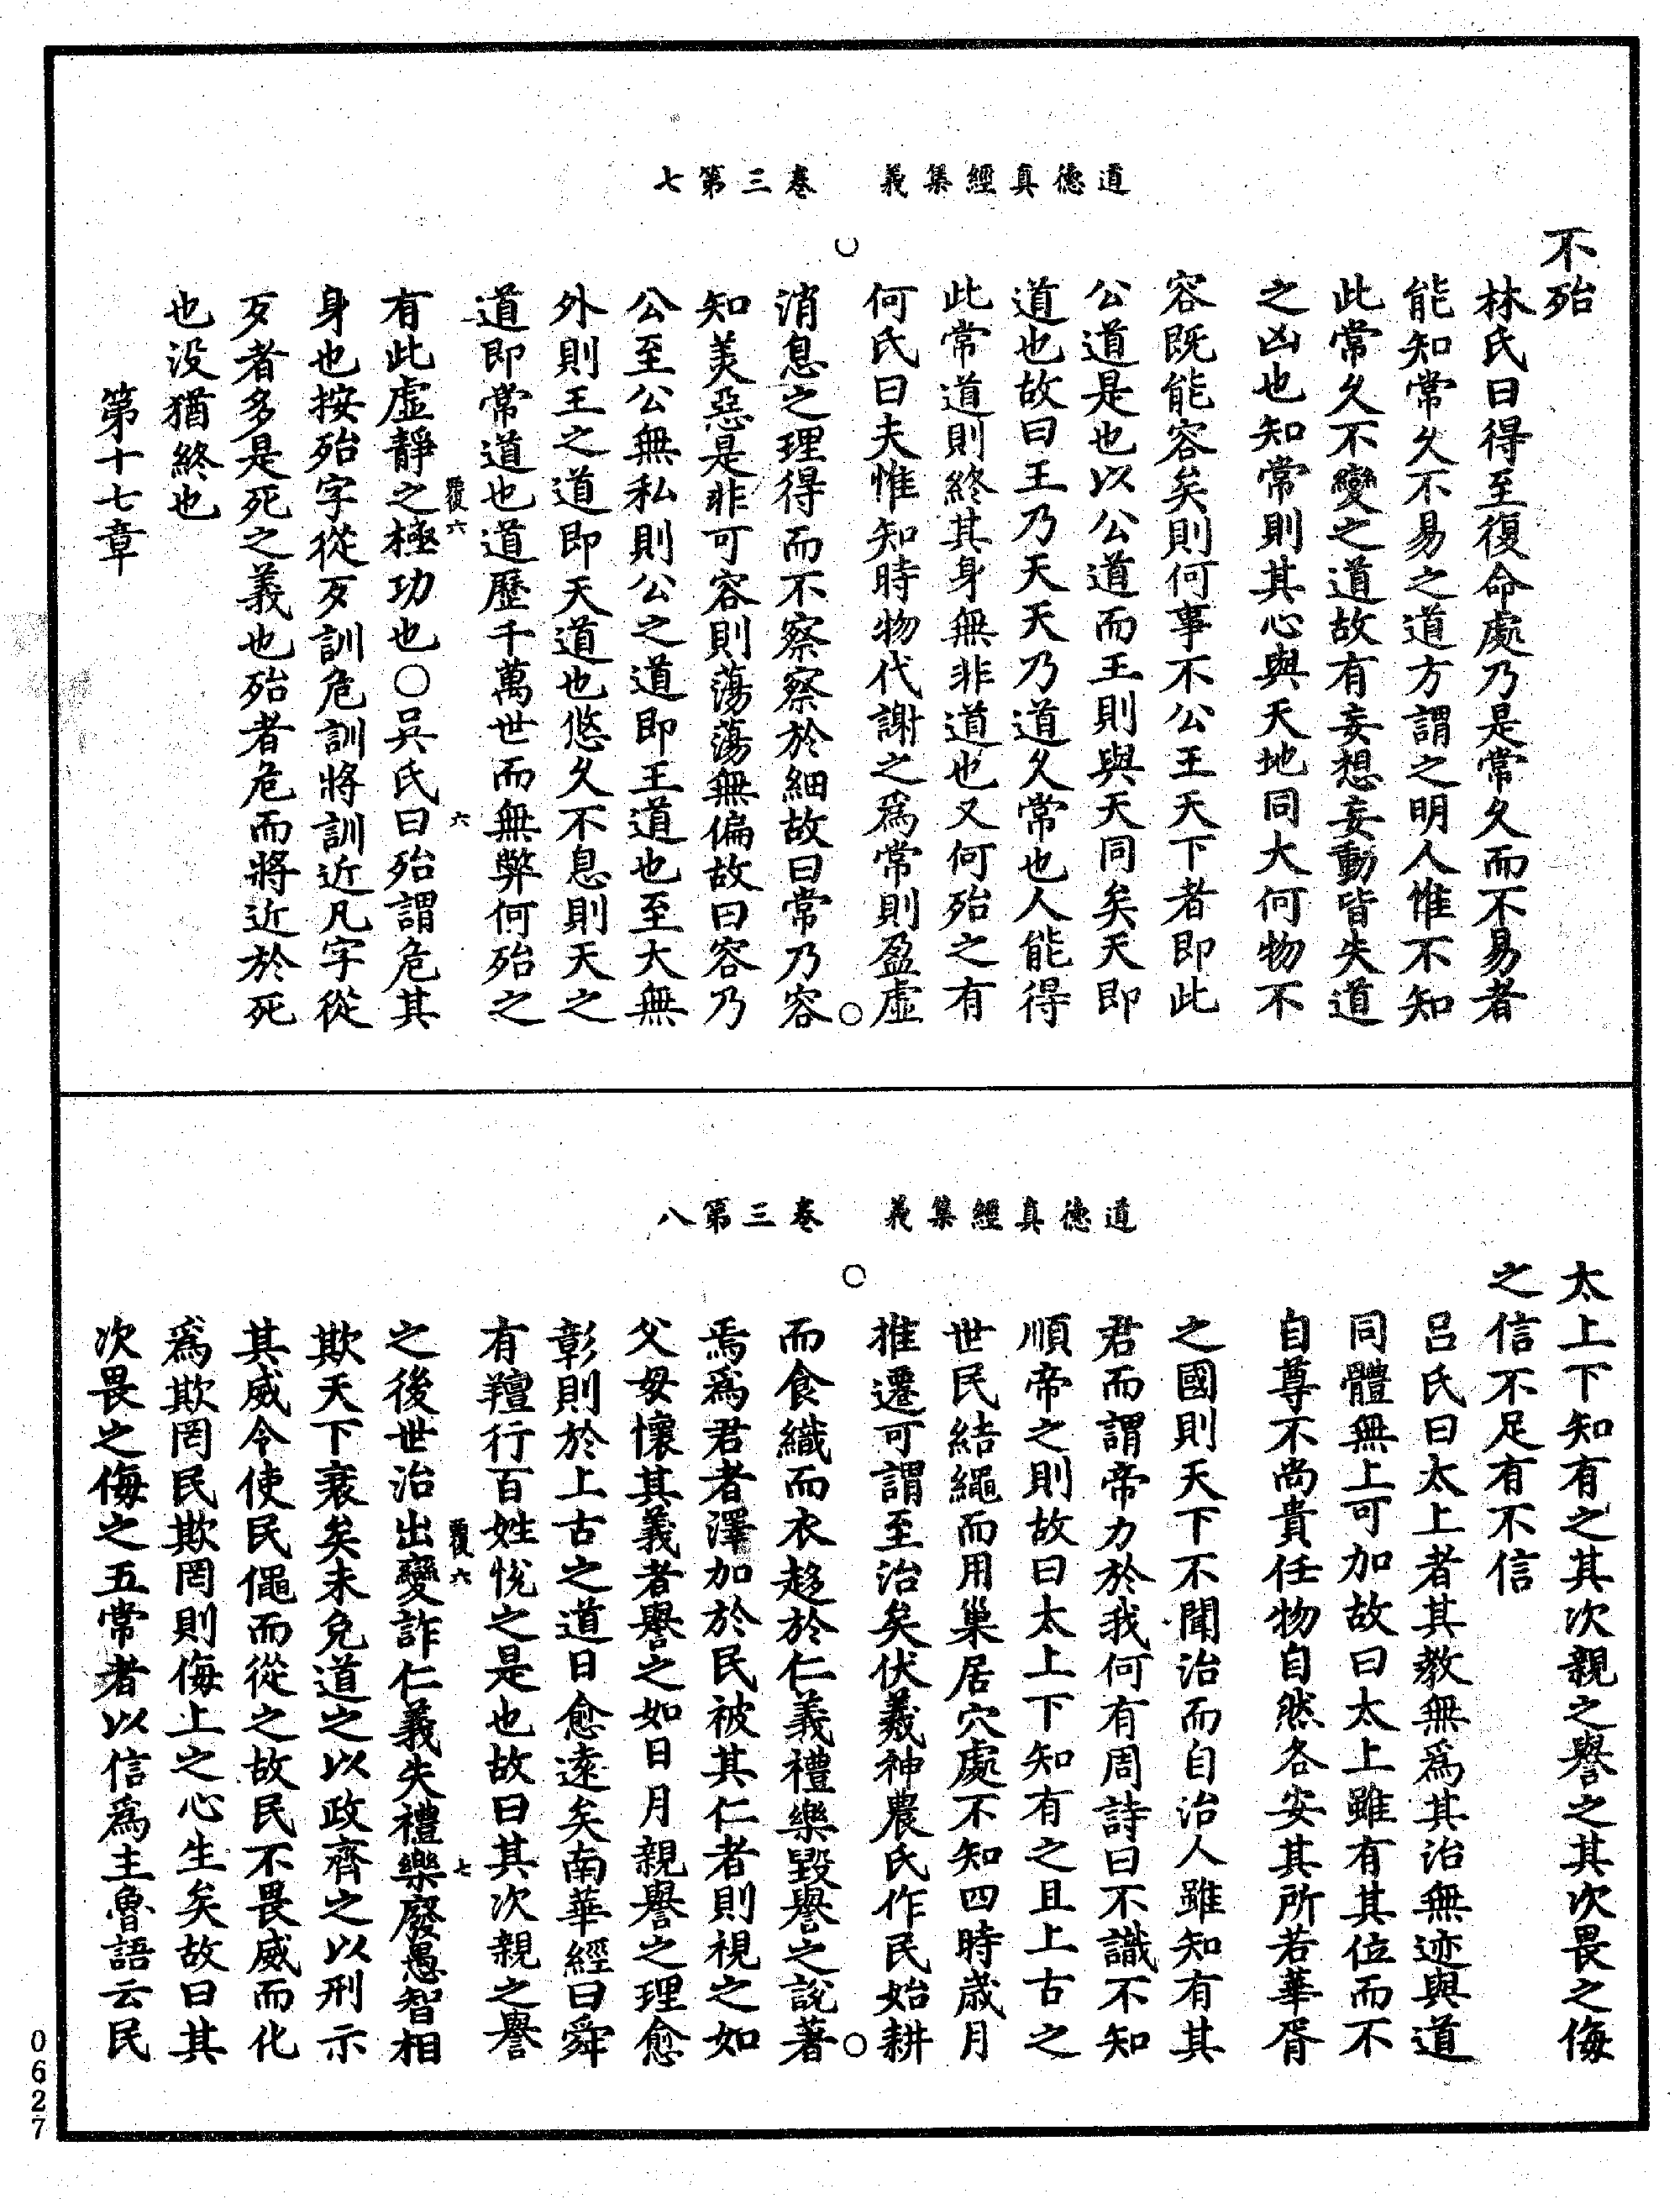 道德真經集義　卷三第七
不殆
林氏曰得至復命處乃是常久而不易者
能知常久不易之道方謂之明人惟不知
此常久不變之道故有妄想妄動皆失道
之凶也知常則其心與天地同大何物不
容既能容矣則何事不公王天下者即此
公道是也以公道而王則與天同矣天即
道也故曰王乃天天乃道久常也人能得
此常道則終其身無非道也又何殆之有
何氏曰夫惟知時物代謝之爲常則盈虛
消息之理得而不察察於細故曰常乃容
知美惡是非可容則蕩蕩無偏故曰容乃
公至公無私則公之道即王道也至大無
外則王之道即天道也悠久不息則天之
道即常道也道歷千萬世而無弊何殆之
覆六　六
有此虛靜之極功也○吳氏曰殆謂危其
身也按殆字從歹訓危訓將訓近凡字從
歹者多是死之義也殆者危而將近於死
也没猶終也
第十七章
道德真經集義　卷三第八
太上下知有之其次親之譽之其次畏之侮
之信不足有不信
呂氏曰太上者其教無爲其治無迹與道
同體無上可加故曰太上雖有其位而不
自尊不尚貴任物自然各安其所若華胥
之國則天下不聞治而自治人雖知有其
君而謂帝力於我何有周詩曰不識不知
順帝之則故曰太上下知有之且上古之
世民結繩而用巢居穴處不知四時歲月
推遷可謂至治矣伏羲神農氏作民始耕
而食織而衣趍於仁義禮樂毀譽之說著
焉爲君者澤加於民被其仁者則視之如
父母懷其義者譽之如日月親譽之理愈
彰則於上古之道日愈遠矣南華經曰舜
有羶行百姓悅之是也故曰其次親之譽
覆六　七
之後世治出變詐仁義失禮樂廢愚智相
欺天下衰矣未免道之以政齊之以刑示
其威令使民僶而從之故民不畏威而化
爲欺罔民欺罔則侮上之心生矣故曰其
次畏之侮之五常者以信爲主魯語云民
0627